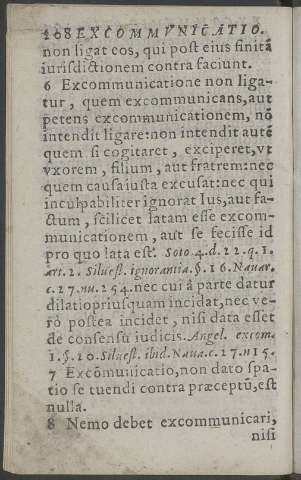 208 EXCOMMVNICATIO.
non ligat eos, qui post eius finitã
iurisdictionem contra faciunt.
6 Excommunicatione non liga-
tur, quem excommunicans, aut
petens excommunicationem, nõ
intendit ligare: non intendit autẽ
quem si cogitaret, exciperet, vt
vxorem, filium, aut fratrem: nec
quem causa iusta excusat: nec qui
inculpabiliter ignorat Ius, aut fa-
ctum, scilicet latam esse excom-
municationem, aut se fecisse id
pro quo lata est. Soto 4.d.22.q.1.
art.2. Siluest. ignorantia. §.16. Nauar.
c.27.nu.254. nec cui à parte datur
dilatio priusquam incidat, nec ve-
rò postea incidet, nisi data esset
de consensu iudicis. Angel. excom.
1.§.20. Siluest. ibid. Naua.c.27.n15.
7 Excõmunicatio, non dato spa-
tio se tuendi contra præceptũ, est
nulla.
8 Nemo debet excommunicari,
nisi